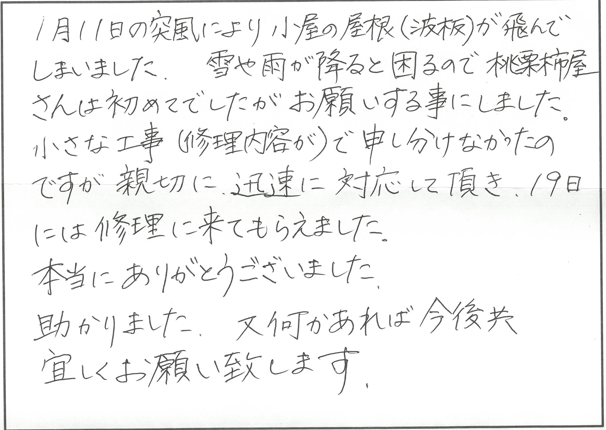 1月11日の突風により小屋の屋根(波板)が飛んで
しまいました. 雪や雨が降ると困るので桃栗柿屋
さんは初めてでしたがお願いする事にしました。
小さな工事(修理内容が)で申し分けなかったの
ですが親切に.迅速に対応して頂き.19日
には修理に来てもらえました。
本当にありがとうございました.
助かりました. 又何かあれば今後共
宜しくお願い致します.